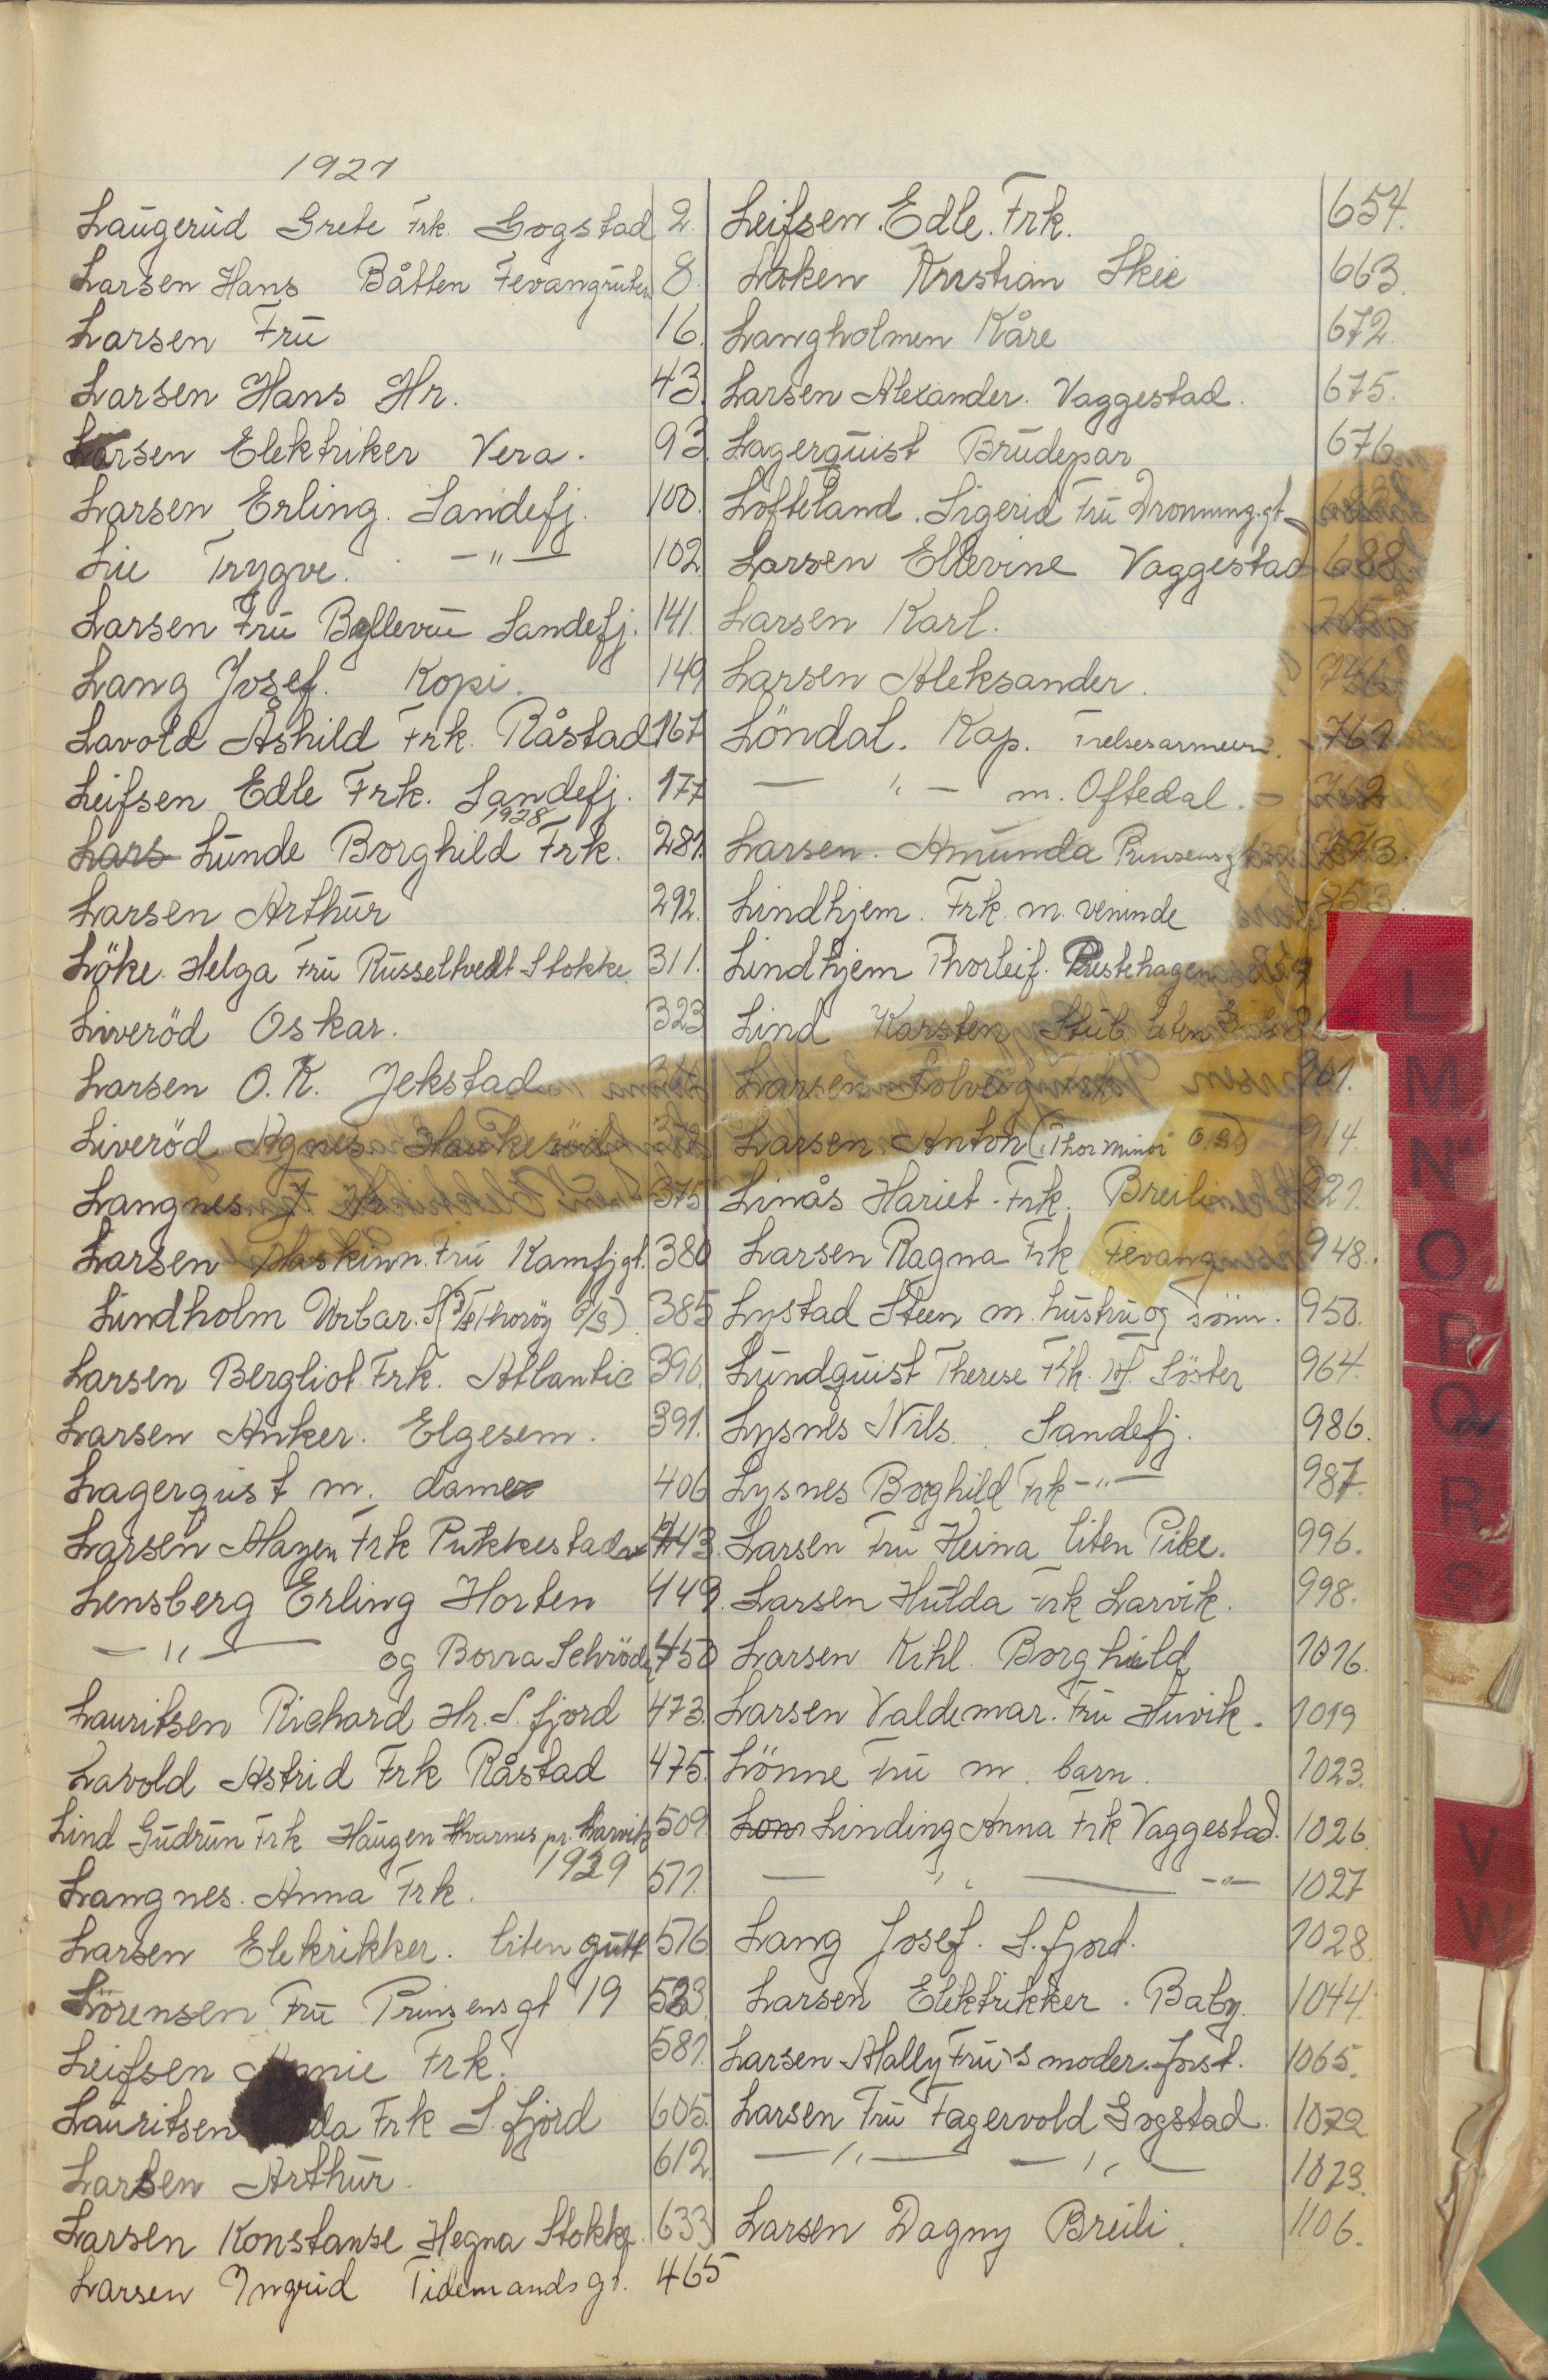 1927
Laugerud Grete Frk. Gogstad 2.
Larsen Hans Båtten Fevangruten 8.
Larsen Fru 16.
Larsen Hans Hr. 43.
Larsen Elektriker Vera. 93.
Larsen Erling. Sandefj. 100.
Lie Trygve. —"— 102
Larsen Fru Bellevue Sandefj. 141.
Lang Josef. Kopi. 149
Lavold Åshild Frk. Råstad 167
Leifsen Edle Frk. Sandefj. 177
1928
Lars Lunde Borghild Frk. 281.
Larsen Arthur 292.
Löke. Helga Fru Russeltvedt Stokke 311.
Liveröd Oskar. 323
Larsen O. K. Jekstad
Liveröd Agnes Haukeröd
Langnes 375
Larsen Maskinn. Fru Kamfjgt. 380
Lindholm Vorbar. S (S/S Thoröy O/S) 385
Larsen Bergliot Frk. Atlantic 390.
Larsen Anker. Elgesem. 391.
Lagerquist m. damer 406
Larsen Magen Frk Pukkestad 443.
Lensberg Erling Horten 449.
—"— og Borra Schröder 450
Lauritsen Richard Hr. S. fjord 473.
Lavold Astrid Frk Råstad 475.
Lind Gudrun Frk Haugen Kvarnes pr. Larvik 509.
1929
Langnes. Anna Frk. 571.
Larsen Elekrikker. liten gutt 576
Lörensen Fru Prinsensgt 19
Leifsen Frk. 581.
Lauritsen da Frk S. fjord 605.
Larsen Arthur. 612.
Larsen Konstanse Hegna Stokke. 633
Larsen Ingrid Tidemandsgt. 465
Leifsen. Edle. Frk. 654.
Løken Kristian Skie 663.
Langholmen Kåre 672.
Larsen Alexander. Vaggestad. 675.
Lagerquist Brudepar 676
Lofteland. Sigerid Fru Dronning.gt
Larsen Ellevine Vaggestad 688
Larsen Karl.
Larsen Aleksander.
Löndal. Kap. Frelsesarmeen. 761
— " — m. Oftedal. — 762
Larsen. Amunda Prinsensgt
Lindhjem. Frk. m. veninde 853.
Lindhjem Thorleif. Prestehagen
Lind Karsten Stub. liten
Larsen Solveig 901.
Larsen Anton (Thor Minör O.S.) 914.
Linås Hariet. Frk. Breili 921.
Larsen Ragna Frk Fevang 948.
Lystad Steen m. hustru og sönn. 950.
Lundquist Therese Frk. M. Söster 964.
Lysnes Nils. Sandefj. 986.
Lysnes Borghild Frk —"— 987.
Larsen Fru Heina liten Pike. 996.
Larsen Hulda Frk Larvik. 998.
Larsen Kihl. Borghild 1016.
Larsen Valdemar. Fru Huvik. 1019
Lönne Fru m. barn. 1023.
Lom Linding Anna Frk Vaggestad. 1026
— " — —"— 1027
Lang Josef. S. fjord. 1028.
Larsen Elektrikker. Baby. 1044.
Larsen Mally Fru's moder. Forst. 1065.
Larsen Fru Fagervold Gogstad. 1072
—"— —"— 1073.
Larsen Dagny Breili. 1106.
L
M
N
O
P
Q
R
S
V
W